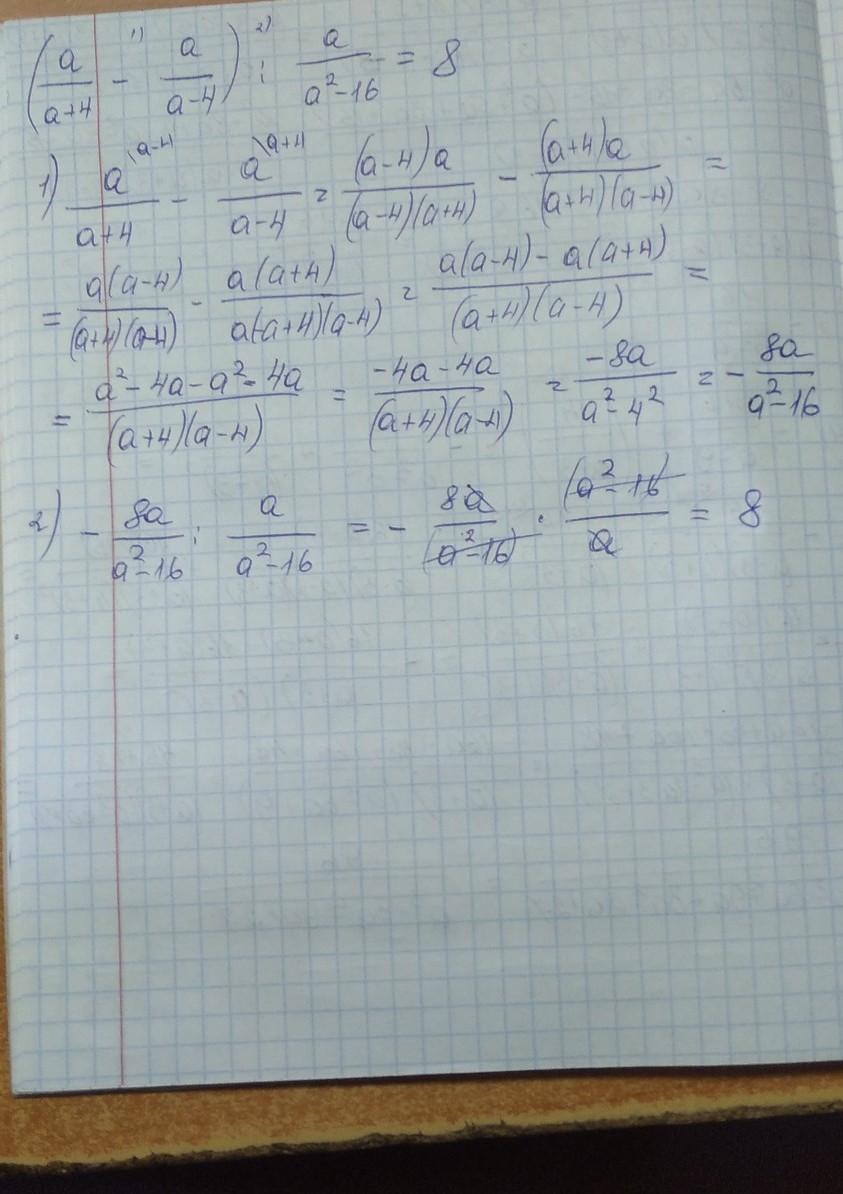 (a/(a+4) - a/(a-4)) : a/(a²-16) = 8 1) 2)
1) a/(a+4) \a-4 - a/(a-4) \a+4 = (a-4)a/((a-4)(a+4)) - (a+4)a/((a+4)(a-4)) =
= a(a-4)/((a+4)(a-4)) - a(a+4)/(a(a+4)(a-4)) = (a(a-4) - a(a+4))/((a+4)(a-4)) =
= (a²-4a-a²-4a)/((a+4)(a-4)) = (-4a-4a)/((a+4)(a-4)) = -8a/(a²-4²) = - 8a/(a²-16)
2) - 8a/(a²-16) : a/(a²-16) = - 8a/(a²-16) · (a²-16)/a = 8